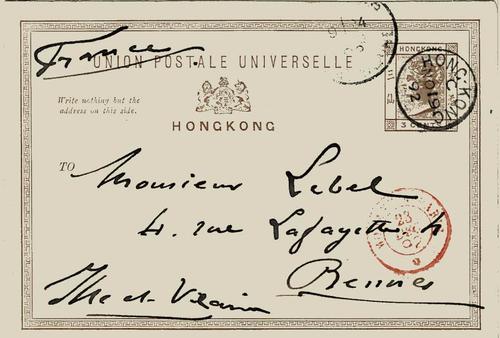 France.
UNION POSTALE UNIVERSELLE
HONGKONG
3 CENTS
HONGKONG
C
NO 19
92
Write nothing but the
address on this side.
HONGKONG
TO
Monsieur Lebel
4. rue Lafayette 4
Rennes
Ille et Vilaine
23